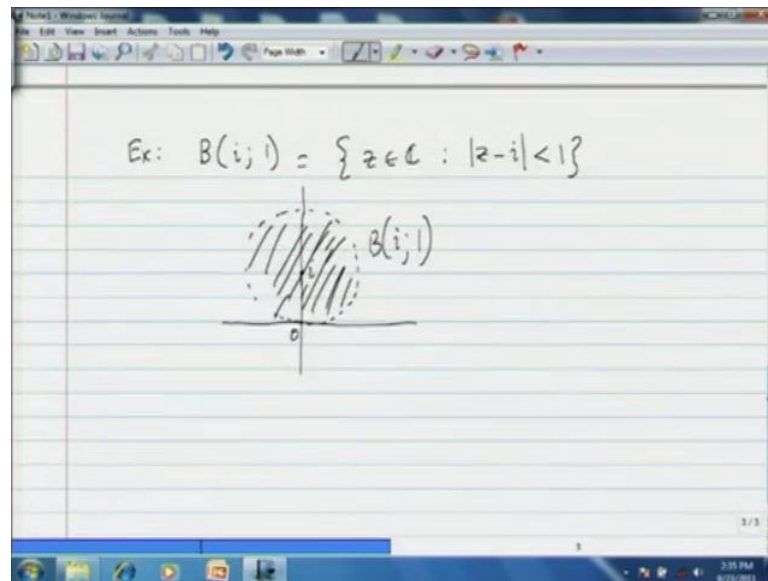 Note1 - Windows Journal
File Edit View Insert Actions Tools Help
Page Width
Ex: B(i; 1) = { z ∈ ℂ : |z - i| < 1}
B(i; 1)
i
0
3 / 3
3
2:35 PM